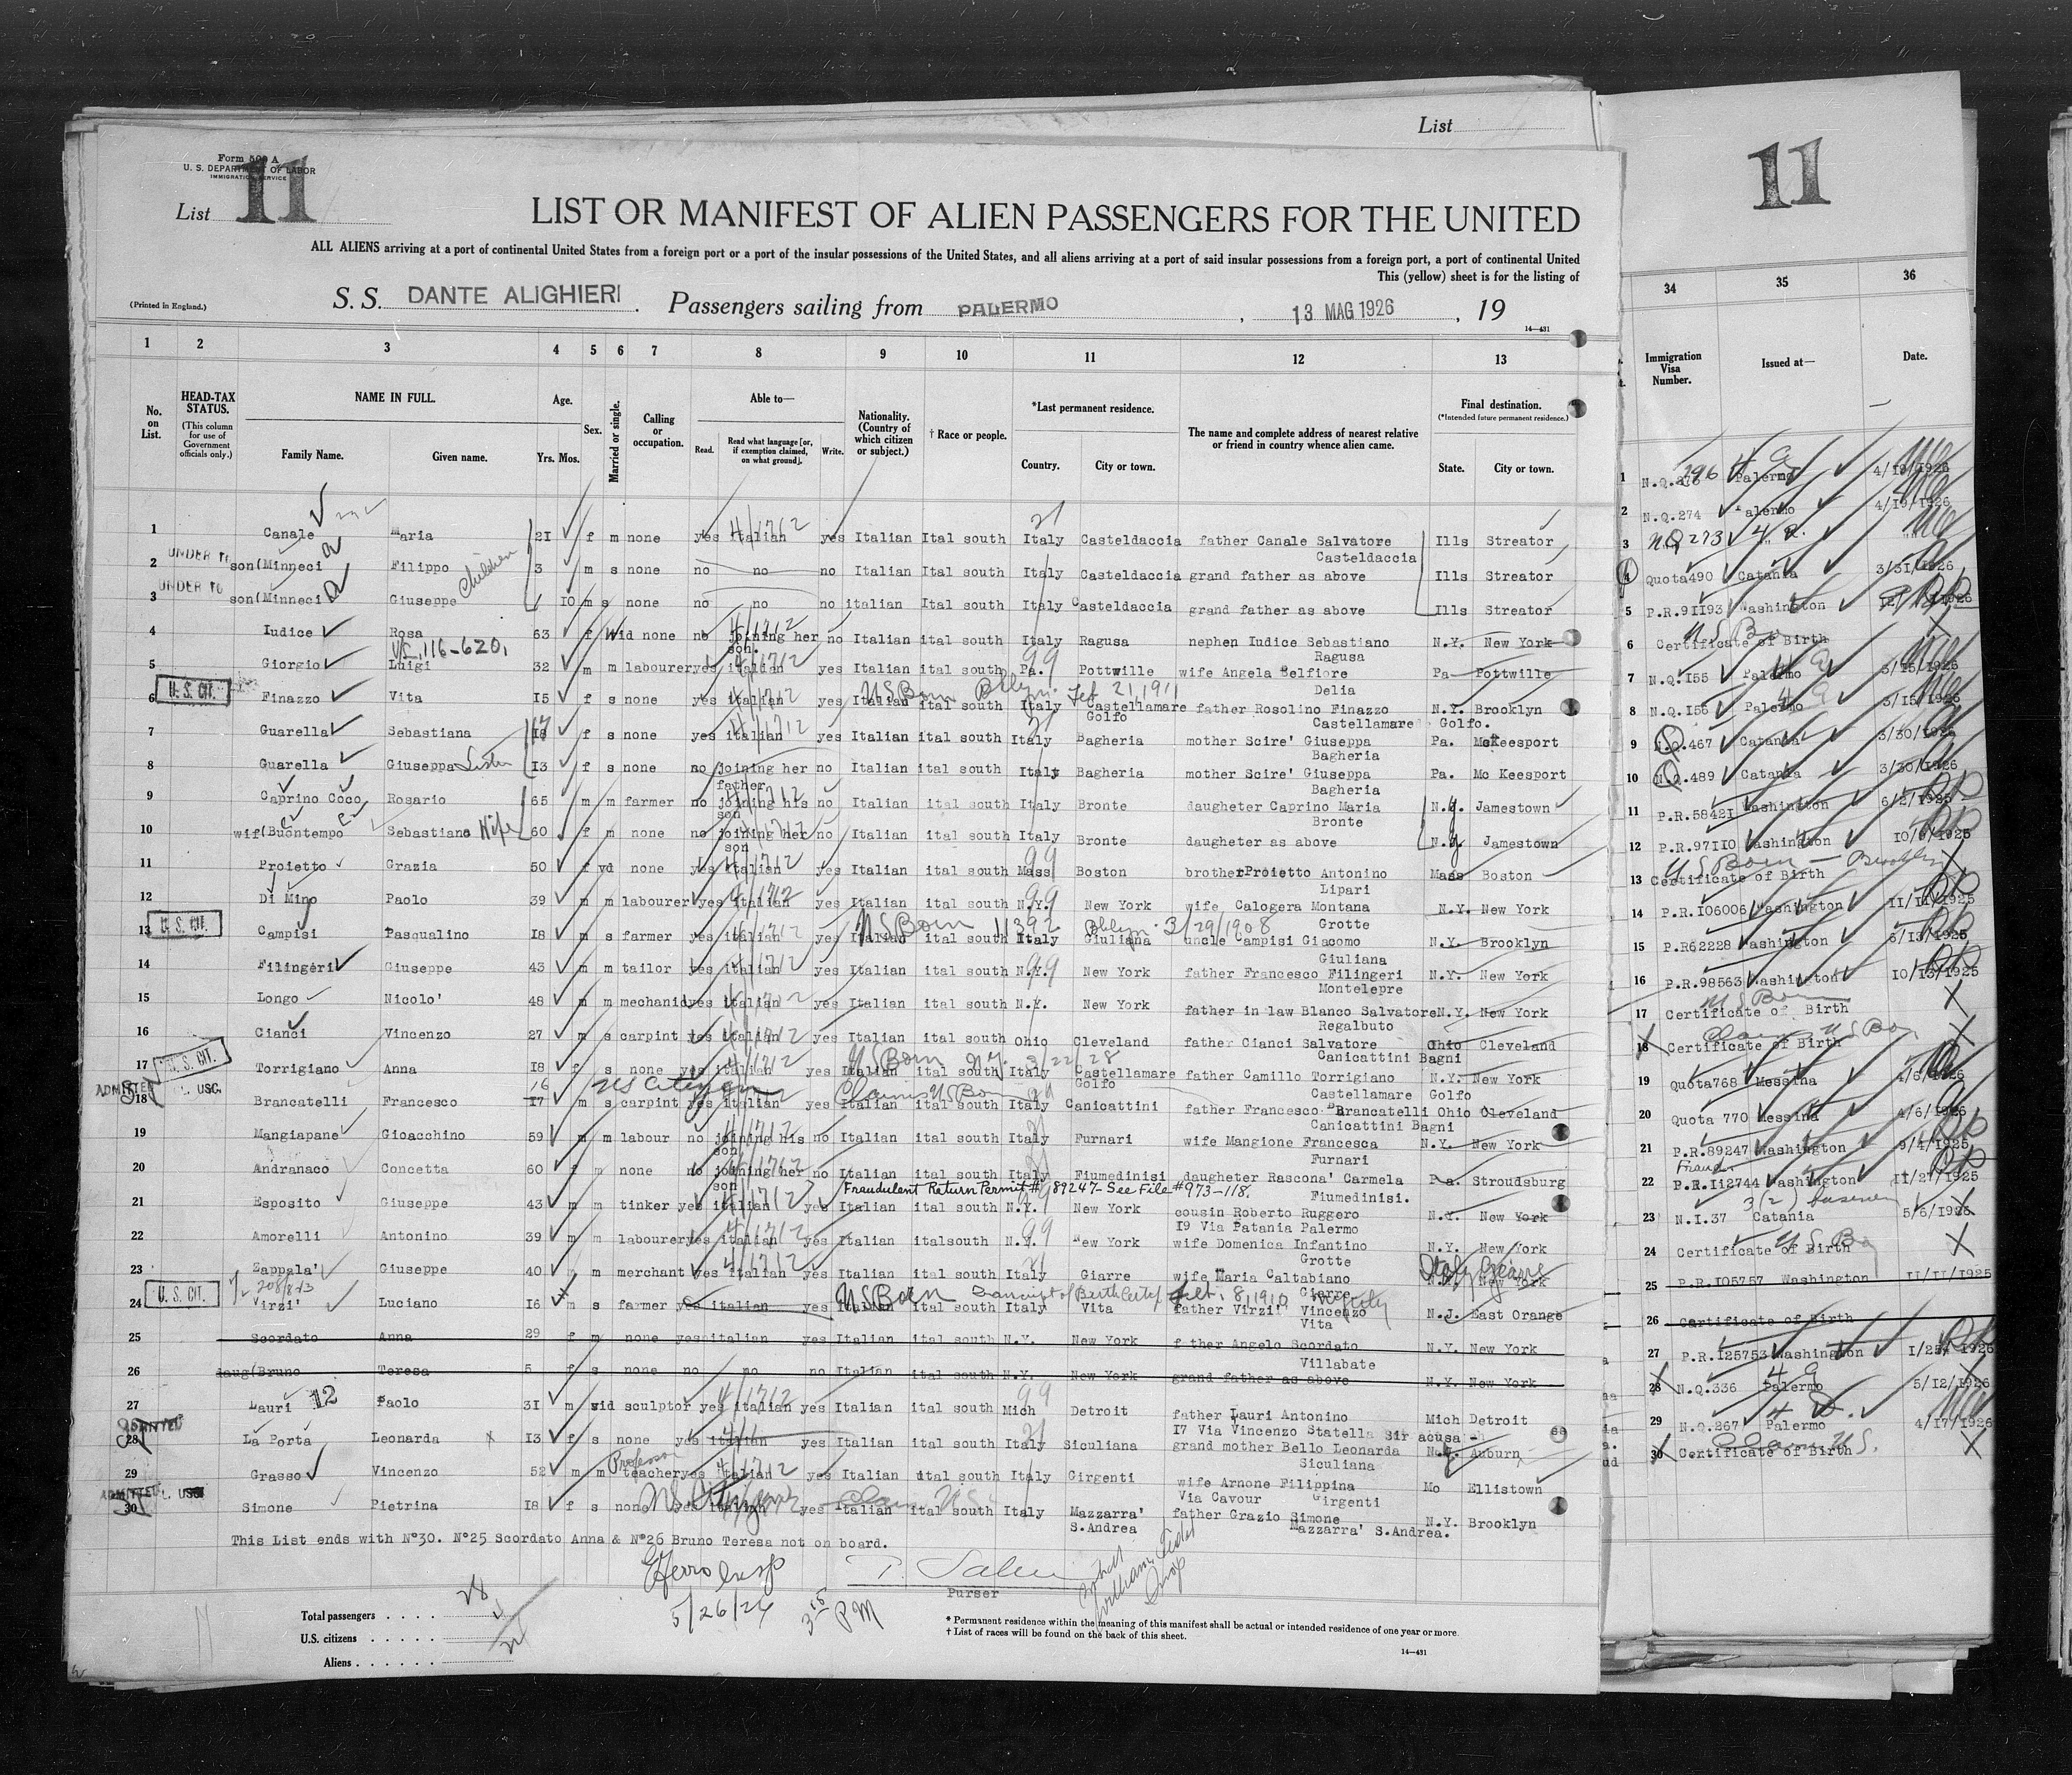 List
Form 500 A
U. S. DEPARTMENT OF LABOR
IMMIGRATION SERVICE
List 11
11
LIST OR MANIFEST OF ALIEN PASSENGERS FOR THE UNITED
ALL ALIENS arriving at a port of continental United States from a foreign port or a port of the insular possessions of the United States, and all aliens arriving at a port of said insular possessions from a foreign port, a port of continental United
This (yellow) sheet is for the listing of
(Printed in England.)
S. S. DANTE ALIGHIERI. Passengers sailing from PALERMO, 13 MAG 1926, 19
14—431
1 2 3 4 5 6 7 8 9 10 11 12 13
34 35 36
No. on List.
HEAD-TAX STATUS. (This column for use of Government officials only.)
NAME IN FULL.
Family Name. Given name.
Age.
Yrs. Mos.
Sex.
Married or single.
Calling or occupation.
Able to—
Read. Read what language [or, if exemption claimed, on what ground]. Write.
Nationality. (Country of which citizen or subject.)
† Race or people.
*Last permanent residence.
Country. City or town.
The name and complete address of nearest relative or friend in country whence alien came.
Final destination.
(*Intended future permanent residence.)
State. City or town.
Immigration Visa Number.
Issued at—
Date.
1 Canale Maria 21 f m none yes italian yes Italian Ital south Italy Casteldaccia father Canale Salvatore Ills Streator
Casteldaccia
UNDER 16
2 son(Minneci Filippo children 3 m s none no no no Italian Ital south Italy Casteldaccia grand father as above Ills Streator
UNDER 16
3 son(Minneci Giuseppe 10 m s none no no no italian Ital south Italy Casteldaccia grand father as above Ills Streator
4 Iudice Rosa 63 f Wid none no joining her no Italian ital south Italy Ragusa nephen Iudice Sebastiano N.Y. New York
116-620 son. Ragusa
5 Giorgio Luigi 32 m m labourer yes italian yes Italian ital south Pa. Pottwille wife Angela Belfiore Pa Pottwille
U. S. CIT. US Born Bklyn. Feb 21, 1911 Delia
6 Finazzo Vita 15 f s none yes italian yes Italian ital south Italy Castellamare father Rosolino Finazzo N.Y. Brooklyn
Golfo Castellamare Golfo.
7 Guarella Sebastiana 17 f s none yes italian yes Italian ital south Italy Bagheria mother Scire' Giuseppa Pa. McKeesport
Bagheria
8 Guarella Giuseppa Sister 13 f s none no joining her no Italian ital south Italy Bagheria mother Scire' Giuseppa Pa. Mc Keesport
father Bagheria
9 Caprino Coco Rosario 65 m m farmer no joining his no Italian ital south Italy Bronte daugheter Caprino Maria N.Y. Jamestown
son Bronte
10 wif(Buontempo Sebastiana Wife 60 f m none no joining her no Italian ital south Italy Bronte daugheter as above N.Y. Jamestown
son
11 Proietto Grazia 50 f vd none yes italian yes Italian ital south Mass Boston brother Proietto Antonino Mass Boston
Lipari
12 Di Mino Paolo 39 m m labourer yes italian yes Italian ital south N.Y. New York wife Calogera Montana N.Y. New York
U. S. CIT. US Born 11392 Bklyn. 3/29/1908 Grotte
13 Campisi Pasqualino 18 m s farmer yes italian yes Italian ital south Italy Giuliana uncle Campisi Giacomo N.Y. Brooklyn
Giuliana
14 Filingeri Giuseppe 43 m m tailor yes italian yes Italian ital south N.Y. New York father Francesco Filingeri N.Y. New York
Montelepre
15 Longo Nicolo' 48 m m mechanic yes italian yes Italian ital south N.Y. New York father in law Blanco Salvatore N.Y. New York
Regalbuto
16 Cianci Vincenzo 27 m s carpint yes italian yes Italian ital south Ohio Cleveland father Cianci Salvatore Ohio Cleveland
U. S. CIT. US Born N.Y. Canicattini Bagni
17 Torrigiano Anna 18 f s none yes italian yes Italian ital south Italy Castellamare father Camillo Torrigiano N.Y. New York
ADMITTED USC. 16 US Citizen Claims US Born Golfo Castellamare Golfo
18 Brancatelli Francesco 17 m s carpint yes italian yes Italian ital south Italy Canicattini father Francesco Brancatelli Ohio Cleveland
Canicattini Bagni
19 Mangiapane Gioacchino 59 m m labour no joining his no Italian ital south Italy Furnari wife Mangione Francesca N.Y. New York
son Furnari
20 Andranaco Concetta 60 f m none no joining her no Italian ital south Italy Fiumedinisi daugheter Rascona' Carmela Pa. Stroudsburg
son Fraudulent Return Permit # 89247- See File #973-118. Fiumedinisi.
21 Esposito Giuseppe 43 m m tinker yes italian yes Italian ital south N.Y. New York cousin Roberto Ruggero N.Y. New York
19 Via Patania Palermo
22 Amorelli Antonino 39 m m labourer yes italian yes Italian italsouth N.Y. New York wife Domenica Infantino N.Y. New York
Grotte
23 Zappala' Giuseppe 40 m m merchant yes italian yes Italian ital south Italy Giarre wife Maria Caltabiano Italy Giarre New York
U. S. CIT. US Born Transcript of Birth Certif Feb. 8, 1910 Giarre
24 Virzi' Luciano 16 m s farmer yes italian yes Italian ital south Italy Vita father Virzi' Vincenzo N.J. East Orange
Vita
25 Scordato Anna 29 f m none yes italian yes Italian ital south N.Y. New York f ther Angelo Scordato N.Y. New York
Villabate
26 daug(Bruno Teresa 5 f s none no no no Italian ital south N.Y. New York grand father as above N.Y. New York
27 Lauri 12 Paolo 31 m wid sculptor yes italian yes Italian ital south Mich Detroit father Lauri Antonino Mich Detroit
ADMITTED 17 Via Vincenzo Statella Siracusa
28 La Porta Leonarda 13 f s none yes italian yes Italian ital south Italy Siculiana grand mother Bello Leonarda N.Y. Auburn
Professor Siculiana
29 Grasso Vincenzo 52 m m teacher yes italian yes Italian ital south Italy Girgenti wife Arnone Filippina Mo Ellistown
ADMITTED Via Cavour Girgenti
30 Simone Pietrina 18 f s none yes italian yes Italian ital south Italy Mazzarra' father Grazio Simone N.Y. Brooklyn
S.Andrea Mazzarra' S.Andrea.
This List ends with N°30. N°25 Scordato Anna & N°26 Bruno Teresa not on board.
5/26/26 3 15 PM
Purser
Total passengers . . . . 28
U.S. citizens . . . . .
Aliens . . . . . .
* Permanent residence within the meaning of this manifest shall be actual or intended residence of one year or more.
† List of races will be found on the back of this sheet.
14—431
1 N.Q. 296 Palermo 4/19/1926
2 N.Q.274 Palermo 4/19/1926
3 NQ 273
4 Quota490 Catania 3/31/1926
5 P.R.91193 Washington
6 Certificate of Birth
7 N.Q.155 Palermo 3/15/1926
8 N.Q.156 Palermo 3/15/1926
9 N.Q.467 Catania 3/30/1926
10 N.Q.489 Catania 3/30/1926
11 P.R.58421 Washington 6/2/1925
12 P.R.97110 Washington 10/9/1925
US Born — Brooklyn
13 Certificate of Birth
14 P.R.106006 Washington 11/11/1925
15 P.R62228 Washington 6/13/1925
16 P.R.98563 Washington 10/13/1925
US Born
17 Certificate of Birth
Claims US Born
18 Certificate of Birth
19 Quota768 Messina 4/6/1926
20 Quota 770 Messina 4/6/1926
21 P.R.89247 Washington 9/4/1925
Fraud.
22 P.R.112744 Washington 11/27/1925
23 N.I.37 Catania 5/6/1926
24 Certificate of Birth
25 P.R.105757 Washington 11/11/1925
26 Certificate of Birth
27 P.R.125753 Washington 1/25/1926
28 N.Q.336 Palermo 5/12/1926
29 N.Q.267 Palermo 4/17/1926
Claims U.S.
30 Certificate of Birth